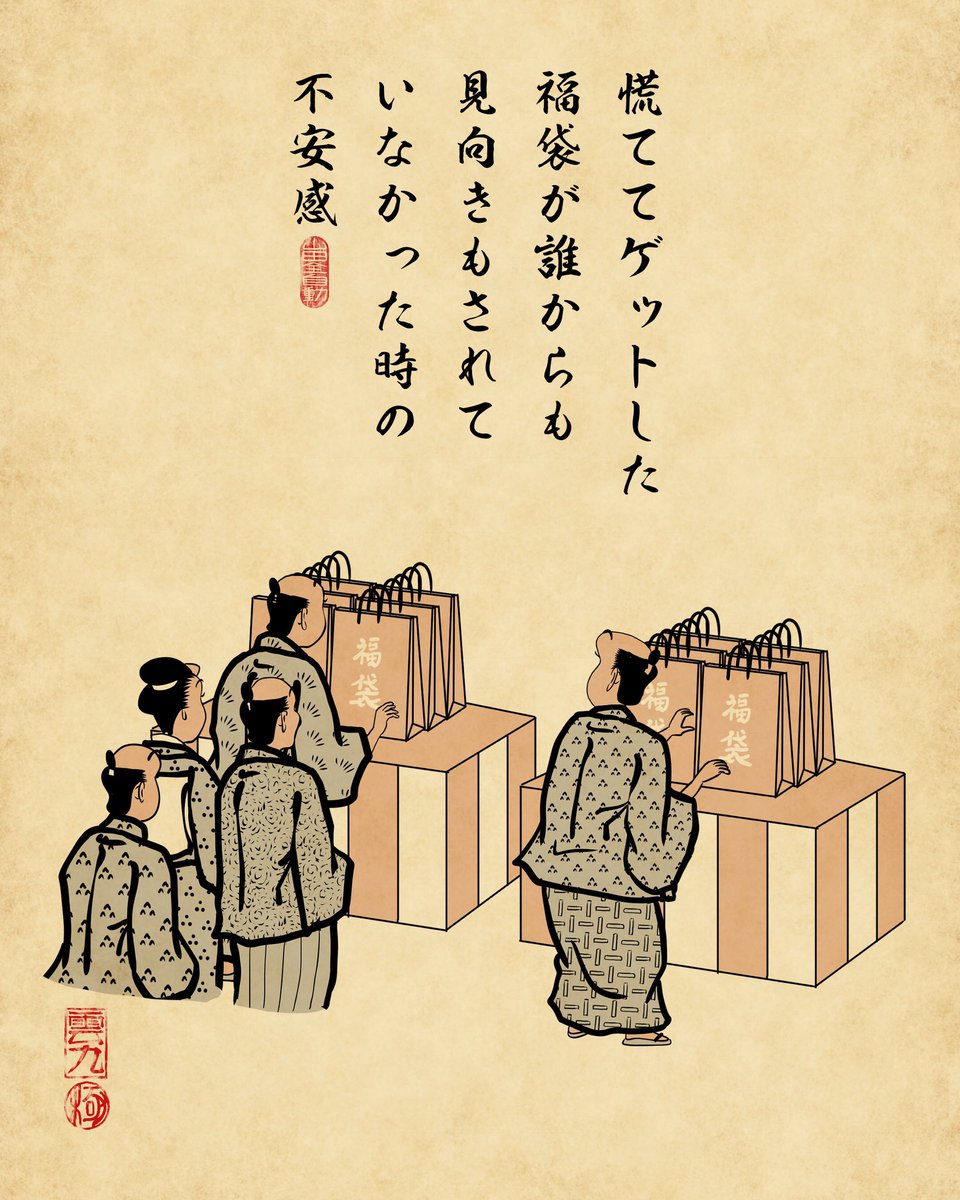 慌ててゲットした
福袋が誰からも
見向きもされて
いなかった時の
不安感
山田全自動
福袋
福袋
福袋